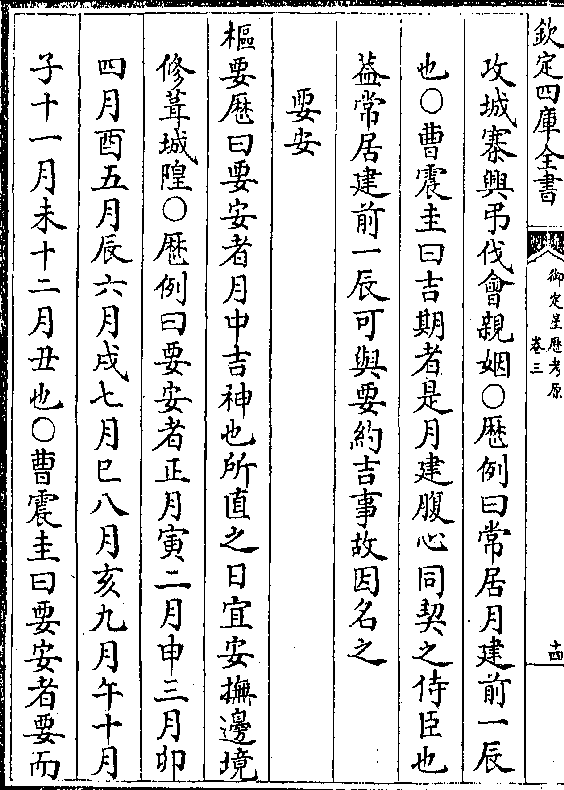 欽定四庫全書
御定星歷考原
卷三
十四
攻城寨興弔伐會親姻○歷例曰常居月建前一辰
也○曹震圭曰吉期者是月建腹心同契之侍臣也
葢常居建前一辰可與要約吉事故因名之
要安
樞要歷曰要安者月中吉神也所直之日宜安撫邊境
修葺城隍○歷例曰要安者正月寅二月申三月卯
四月酉五月辰六月戌七月巳八月亥九月午十月
子十一月未十二月丑也○曹震圭曰要安者要而